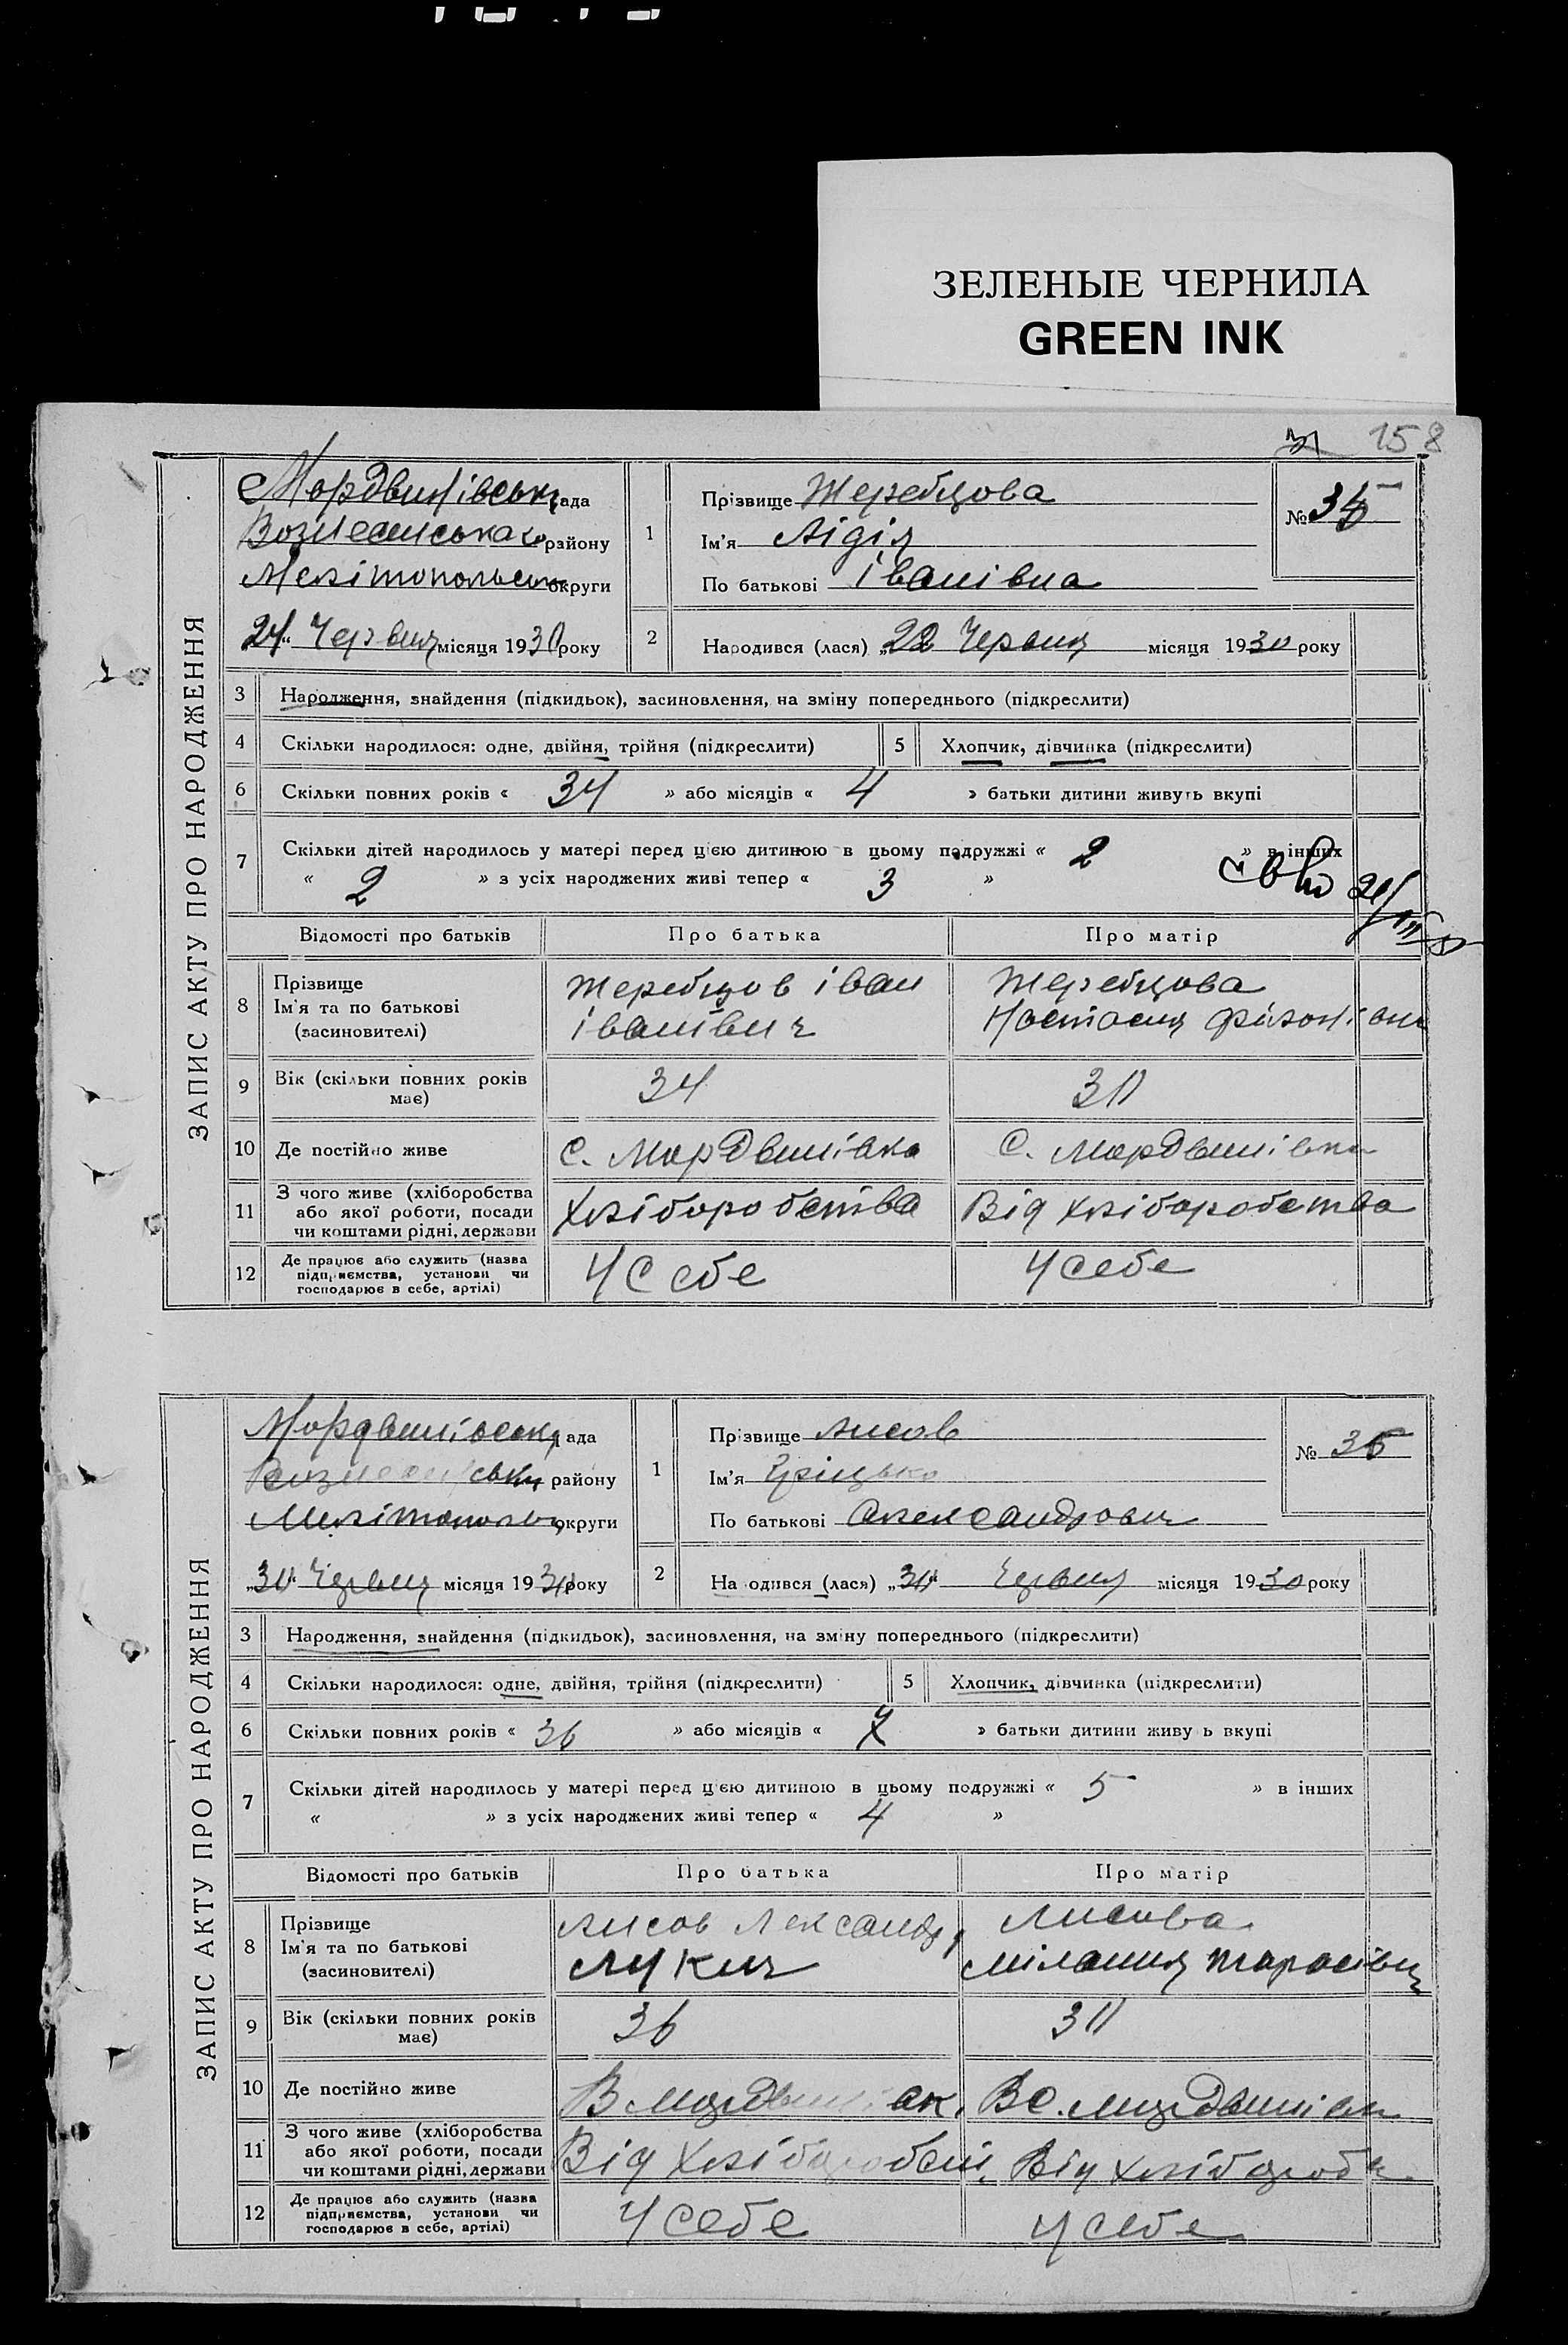 ЗЕЛЕНЫЕ ЧЕРНИЛА
GREEN INK
158
ЗАПИС АКТУ ПРО НАРОДЖЕННЯ
Мордвинівська рада
Вознесенського району
Мелітопольськ округи
24 Червня місяця 1930 року
1
Прізвище Жеребцова
Ім'я Лідія
По батькові Іванівна
№ 35
2
Народився (лася) „22 Червня місяця 1930 року
3 Народження, знайдення (підкидьок), засиновлення, на зміну попереднього (підкреслити)
4 Скільки народилося: одне, двійня, трійня (підкреслити) 5 Хлопчик, дівчинка (підкреслити)
6 Скільки повних років « 34 » або місяців « 4 » батьки дитини живуть вкупі
7 Скільки дітей народилось у матері перед цією дитиною в цьому подружжі « 2 » в інших
« 2 » з усіх народжених живі тепер « 3 »
Відомості про батьків Про батька Про матір
8 Прізвище Ім'я та по батькові (засиновителі)
Жеребцов Іван Іванівич
Жеребцова Настасия
9 Вік (скільки повних років має) 34 30
10 Де постійно живе с. Мордвинівка с. Мордвинівка
11 З чого живе (хліборобства або якої роботи, посади чи коштами рідні, держави
Хліборобства Від хліборобства
12 Де працює або служить (назва підприємства, установи чи господарює в себе, артілі)
У себе У себе
ЗАПИС АКТУ ПРО НАРОДЖЕННЯ
Мордвинівська рада
Вознесенськ району
Мелітопольськ округи
„30" Червня місяця 1930 року
1
Прізвище Лисов
Ім'я Гріцько
По батькові Александрович
№ 36
2
Народився (лася) „30" Червня місяця 1930 року
3 Народження, знайдення (підкидьок), засиновлення, на зміну попереднього (підкреслити)
4 Скільки народилося: одне, двійня, трійня (підкреслити) 5 Хлопчик, дівчинка (підкреслити)
6 Скільки повних років « 36 » або місяців « » батьки дитини живу ь вкупі
7 Скільки дітей народилось у матері перед цією дитиною в цьому подружжі « 5 » в інших
« » з усіх народжених живі тепер « 4 »
Відомості про батьків Про батька Про матір
8 Прізвище Ім'я та по батькові (засиновителі)
Лисов Лександр Лукич
Лисова Мілания Тарасівна
9 Вік (скільки повних років має) 36 30
10 Де постійно живе В Мордвинівк. В с. Мордвинівк
11 З чого живе (хліборобства або якої роботи, посади чи коштами рідні, держави
Від Хліборобст. Від хліборобст
12 Де працює або служить (назва підприємства, установи чи господарює в себе, артілі)
У себе У себе